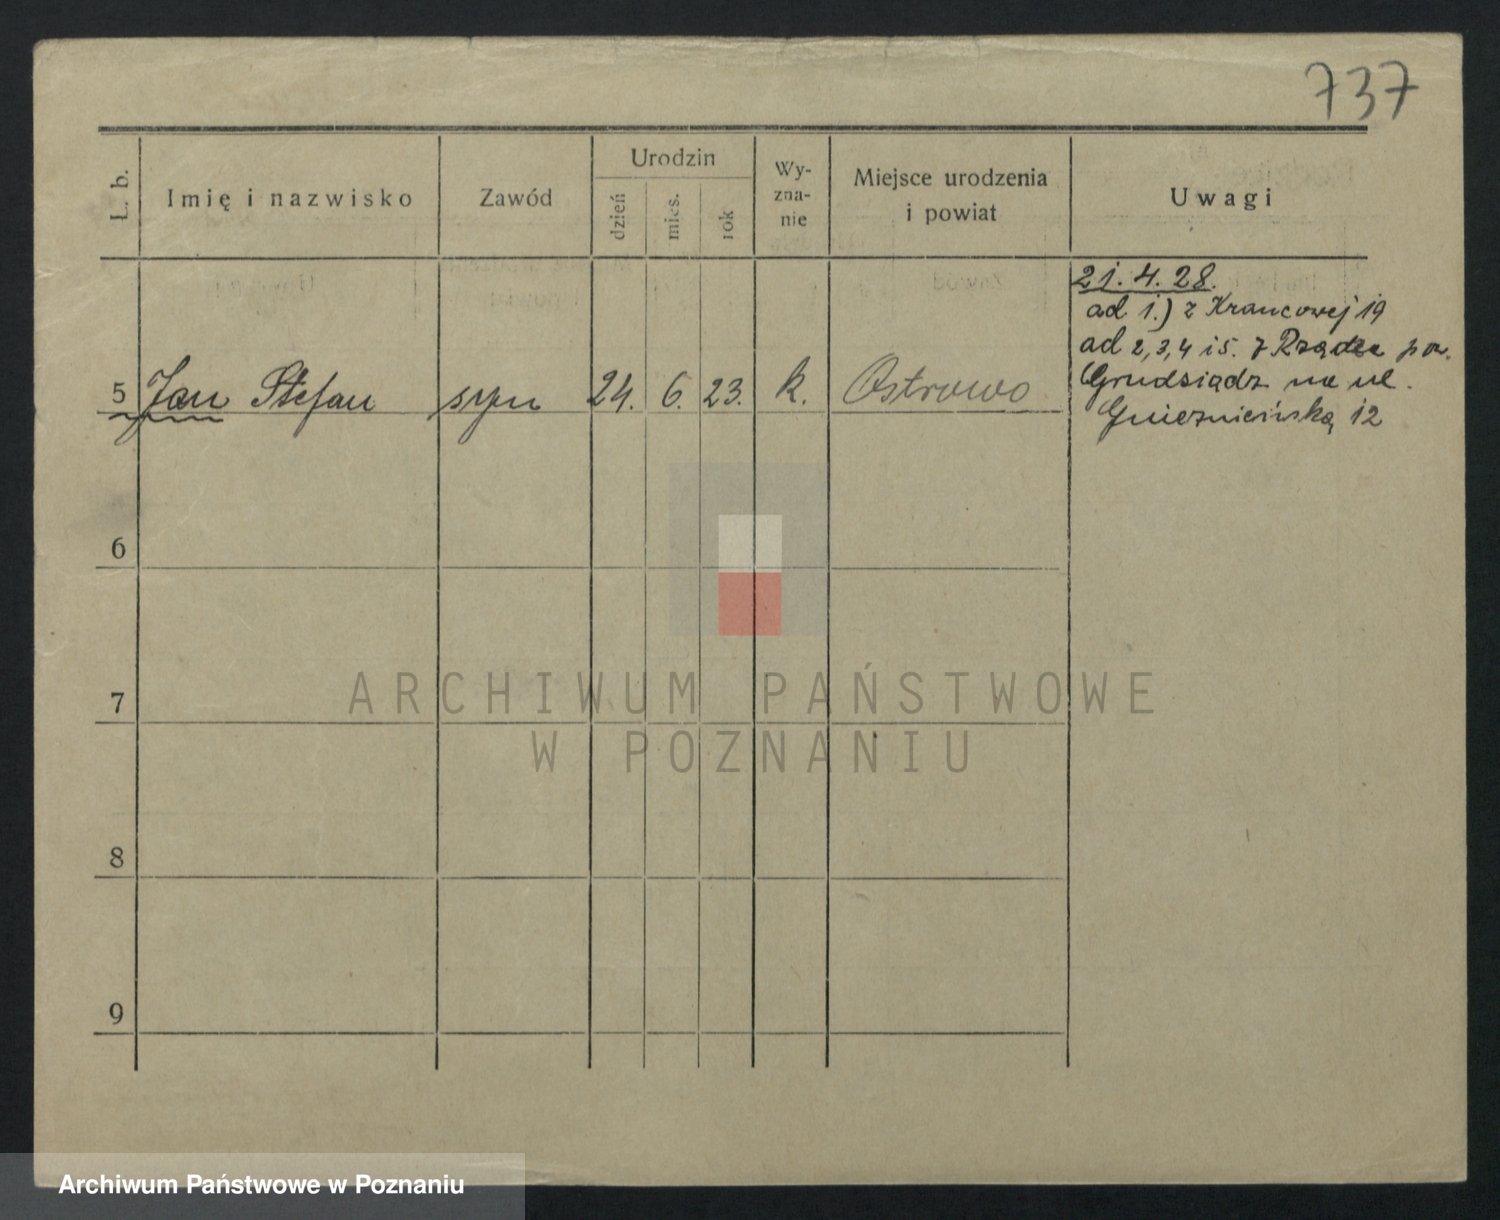 737
L. b.
Imię i nazwisko
Zawód
Urodzin
dzień
mies.
rok
Wy-
zna-
nie
Miejsce urodzenia
i powiat
Uwagi
5 Jan Stefan syn 24. 6. 23. k. Ostrowo
21.4.28.
ad 1.) z Krancowej 19
ad 2,3,4 i 5. z Rządza pow.
Grudziądz na ul.
Gnieźnieńską 12
6
7
8
9
ARCHIWUM PAŃSTWOWE
W POZNANIU
Archiwum Państwowe w Poznaniu